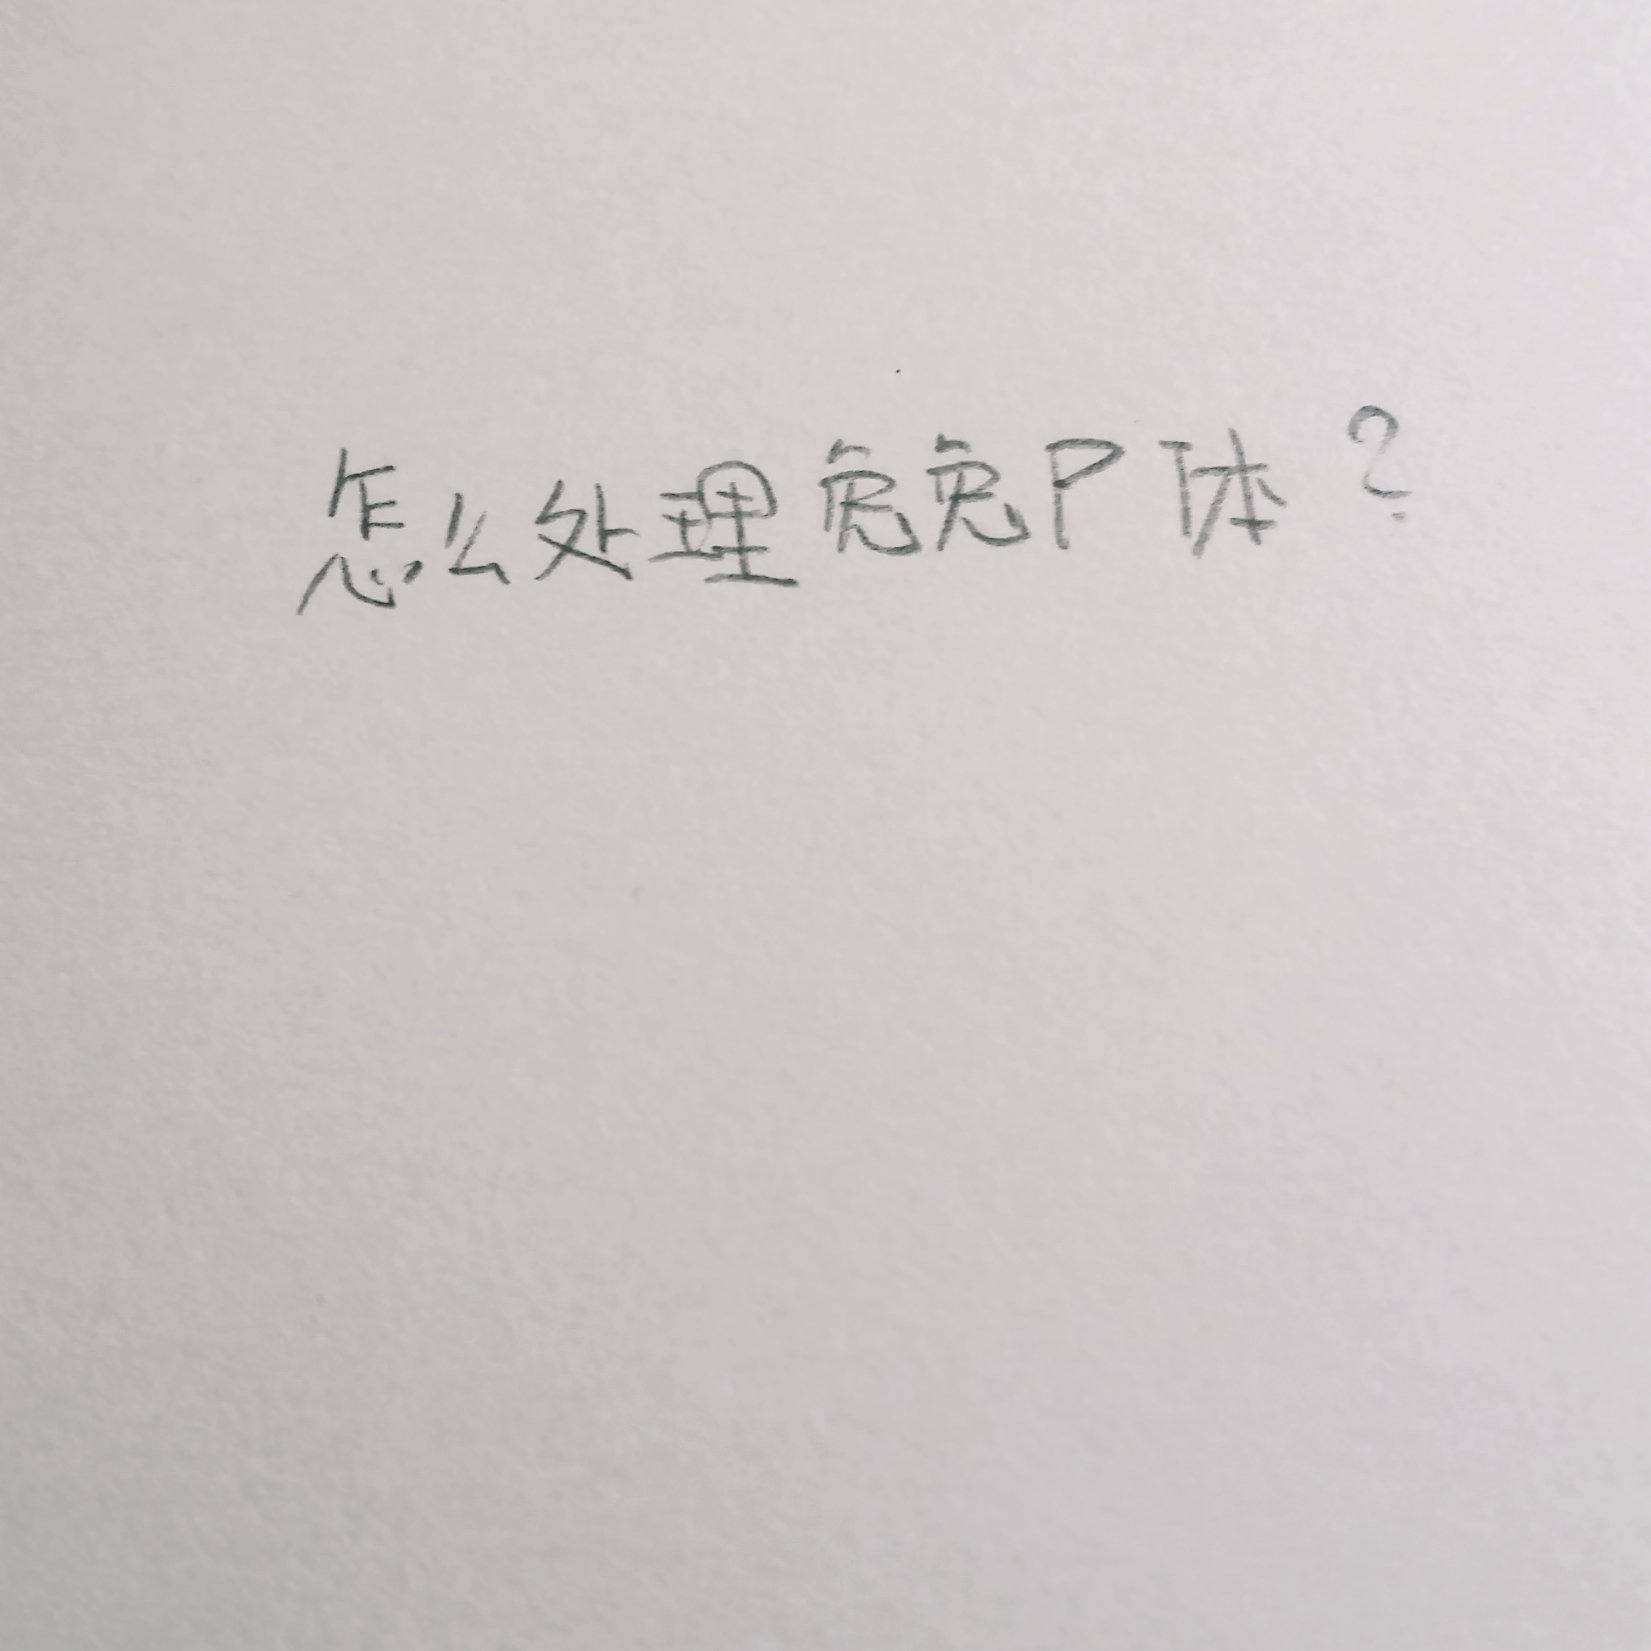 怎么处理兔兔尸体？